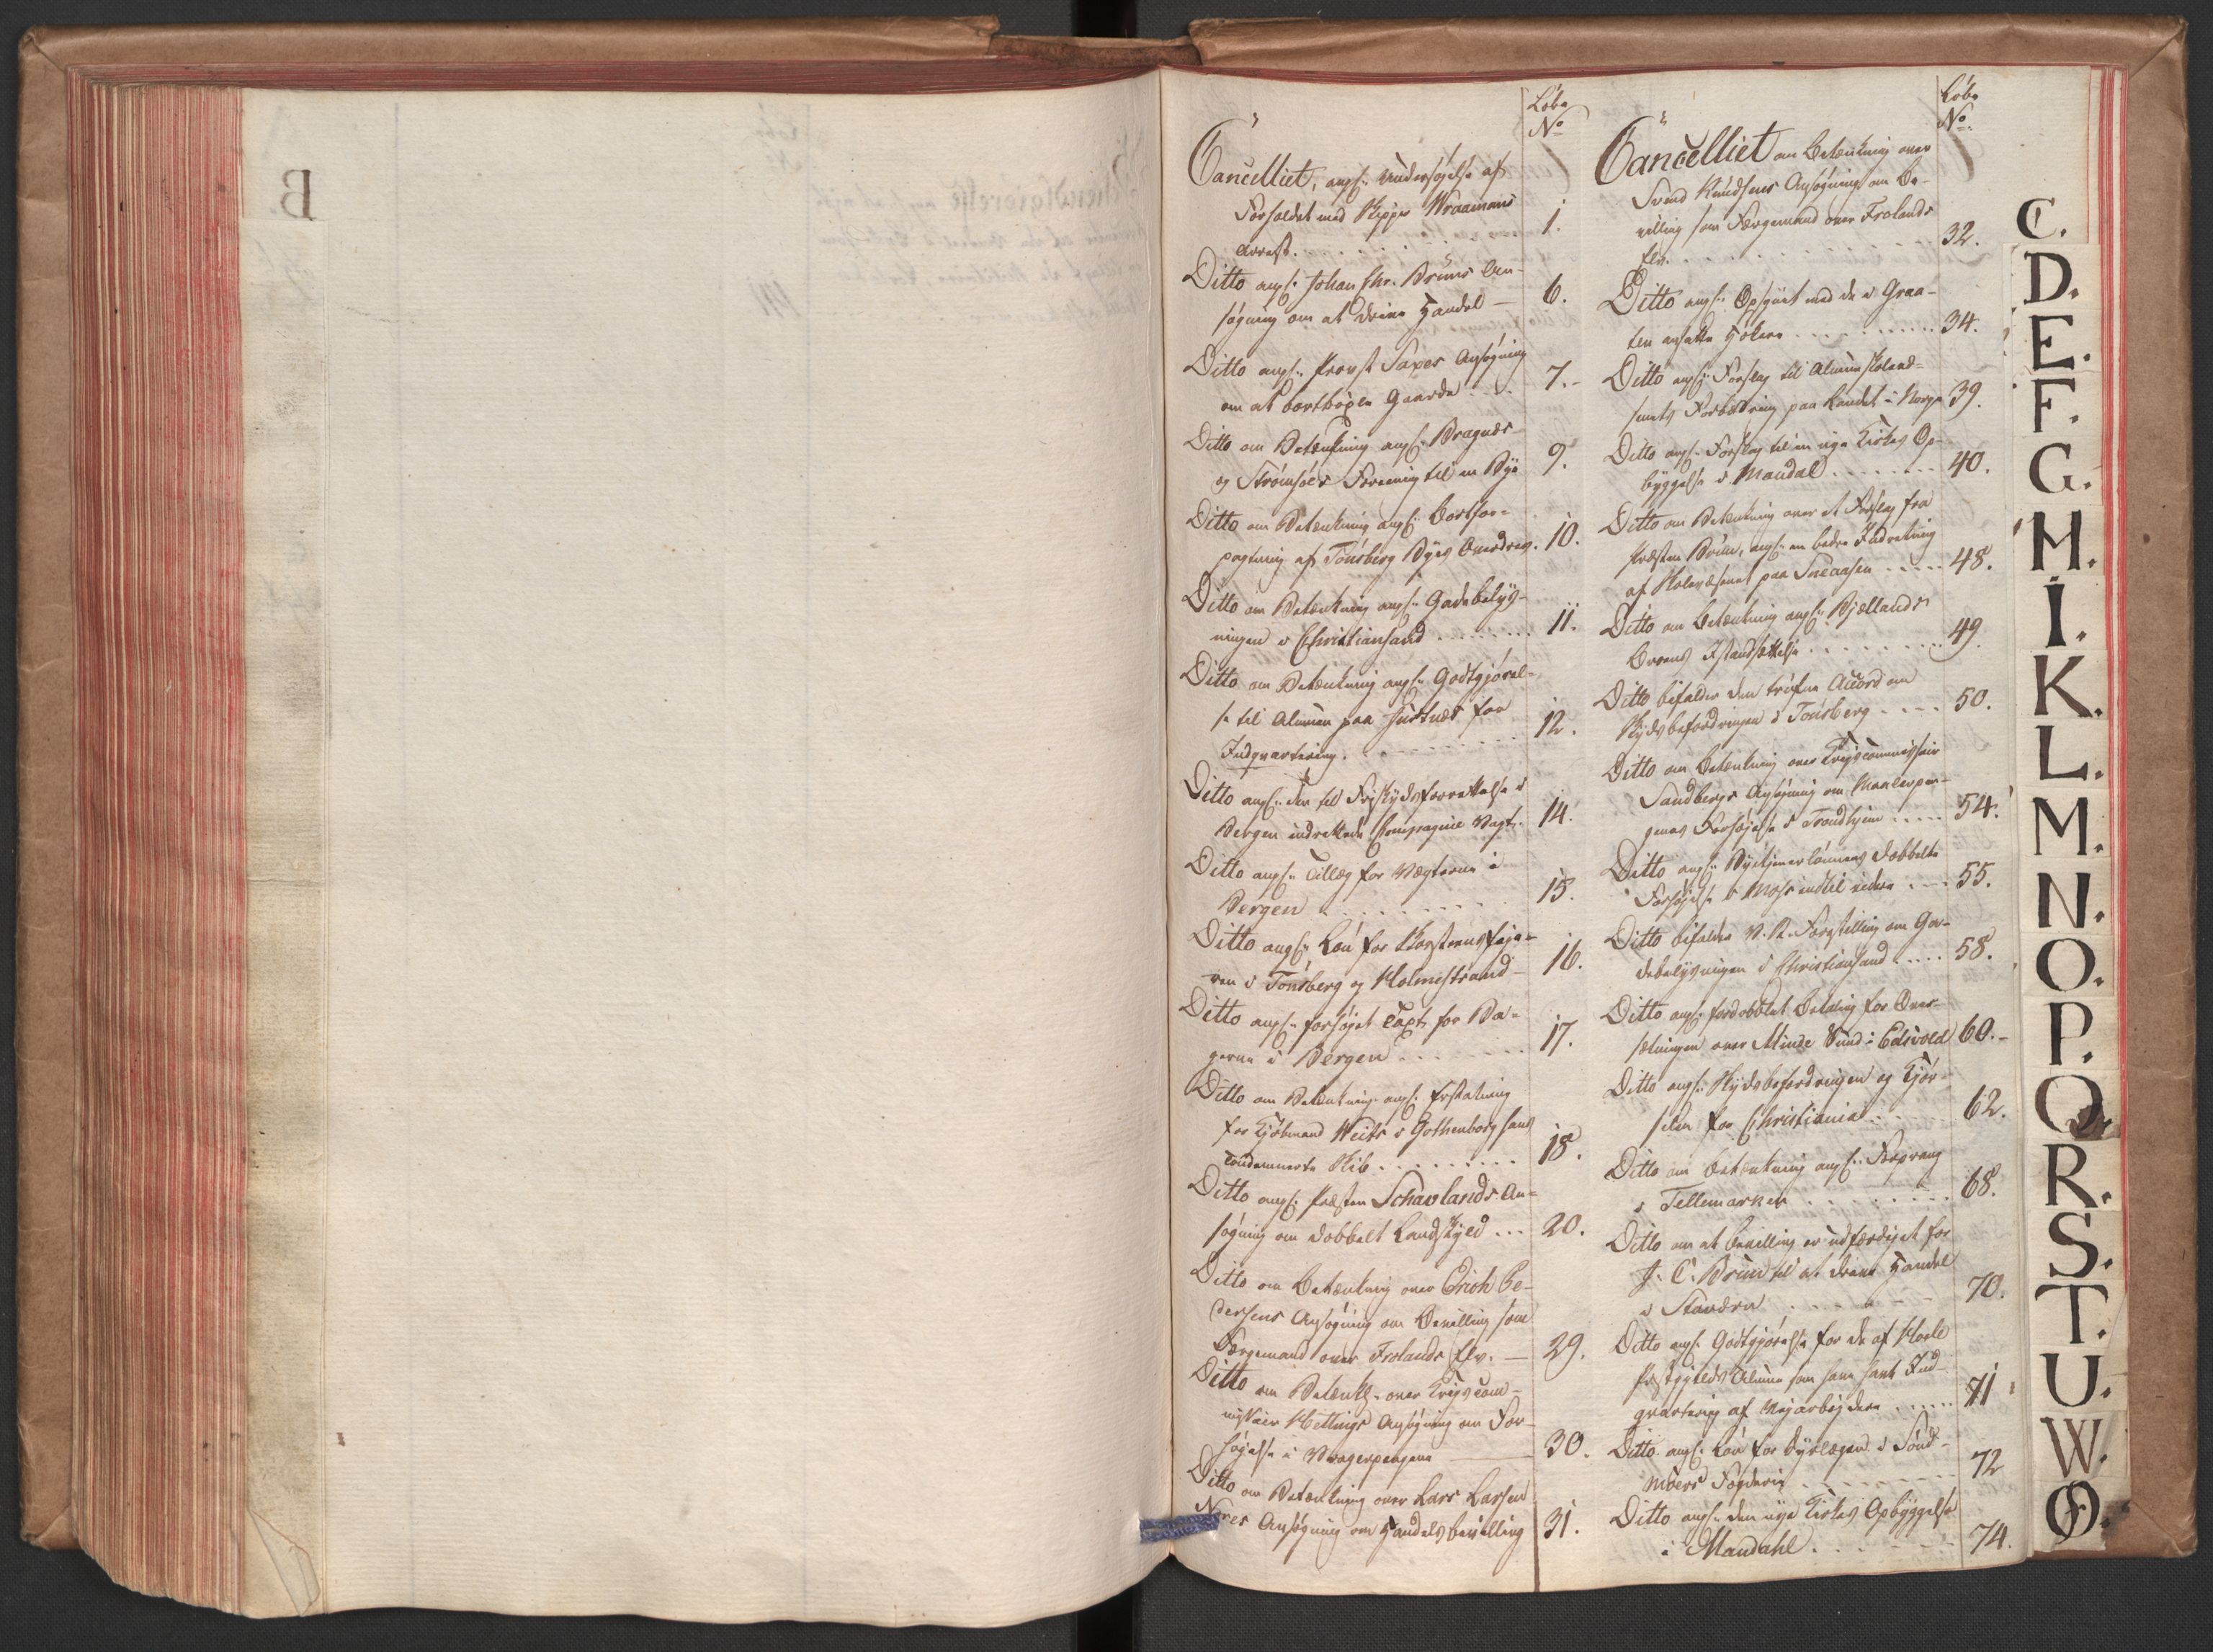 B
Løbe
No
Cancelliet, angs. Undersøgelse af
Forholdet med Skipper Wraamans
Arrest. 1.
Ditto angs. Johan Chr. Bruns An-
søgning om at drive Handel — 6.
Ditto angs. Provst Saxes Ansøgning
om at bortbøxle Gaarde 7.
Ditto om Betænkning angs. Bragnæs-
og Strømsøes Forening til en Bye 9.
Ditto om Betænkning angs. Bortfor-
pagtning af Tønsberg Byes Overdrev. 10.
Ditto om Betænkning angs. Gadebelys-
ningen i Christiansand 11.
Ditto om Betænkning angs. Godtgjørel-
se til Almuen paa for
Indqvartering. 12.
Ditto angs. den til Friskydsforrettelse i
Bergen indrettede Compagnie Vagt. 14.
Ditto angs. Tillæg for Vægterne i
Bergen 15.
Ditto angs. Løn for Skorsteensfeje-
ren i Tønsberg og Holmestrand 16.
Ditto angs. forhøjet Taxt for Ba-
gerne i Bergen 17.
Ditto om Betænkning angs. Erstatning
for Kjøbmand Weits i Gothenborg hans
condemnerte Skib 18.
Ditto angs. Præsten Schavlands An-
søgning om dobbelt Landskyld 20.
Ditto om Betænkning over Erich Pe-
dersens Ansøgning om Bevilling som
Færgemand over Frolands Elv. — 29.
Ditto om Betænkg. over Krigscom-
missair Hettings Ansøgning om For-
højelse i 30.
Ditto om Betænkning over Lars Larsen
Nores Ansøgning om Handels bevilling 31.
Løbe
No.
Cancelliet om Betænkning over
Svend Knudsens Ansøgning om Be-
villing som Færgemand over Frolands
Elv. 32.
Ditto angs. Opsynet med de i Graa-
ten ansatte Høkere 34.
Ditto angs. Forslag til Almueskolevæ-
senets Forbedring paa Landet i Norge 39.
Ditto angs. Forslag til en nye Kirkes Op-
byggelse i Mandal 40.
Ditto om Betænkning over et Forslag fra
Præsten Brun, angs. en bedre Indretning
af Skolevæsenet paa Sneaasen 48.
Ditto om Betænkning angs. Bjellands
Broens Istandsættelse 49.
Ditto bifalder den trufne Accord om
Skydsbefordringen i Tønsberg 50.
Ditto om Betænkning over Krigscommissair
Sandbergs Ansøgning om Maalerpen-
genes Forhøjelse i Trondhjem 54.
Ditto angs. Bytjenerlønnens dobbelte
Forhøjelse i Moss indtil videre 55.
Ditto bifalder V. R. Forestilling om Ga-
debelysningen i Christiansand 58.
Ditto angs. fordobblet Betaling for Over-
sætningen over Minde Sund i Edsvold 60.
Ditto angs. Skydsbefordringen og Kjør-
selen for Christiania 62.
Ditto om Betænkning angs.
i Tellemarken 68.
Ditto om at Bevilling er udfærdiget for
J: C: Brun til at drive Handel
i Stavern 70.
Ditto angs. Godtgjørelse for de af Hole
Præstegjelds Almue som have havt Ind-
qvartering af Vejarbejdere 71
Ditto angs. Løn for Dyrlægen i Sønd-
møers Fogderie 72
Ditto angs. den nye Kirkes Opbyggelse
i Mandahl 74.
C.
D.
E.
F.
G.
H.
I.
K.
L.
M.
N.
O.
P.
Q
R.
S.
T.
U.
W.
Ø.